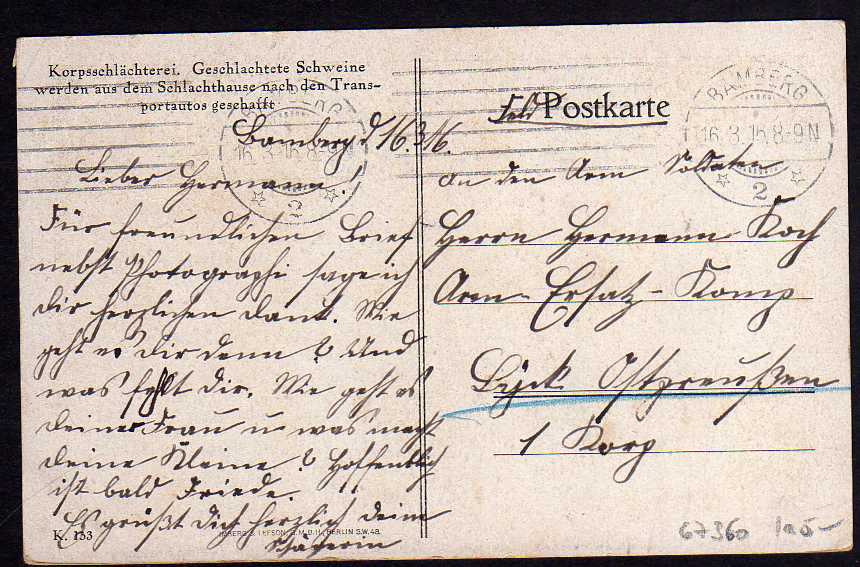 Korpsschlächterei. Geschlachtete Schweine
werden aus dem Schlachthause nach den Trans-
portautos geschafft
Bamberg d 16.3.16.
Lieber Hermann!
Für freundlichen Brief
nebst Photographi sage ich
dir herzlichen Dank. Wie
geht es dir denn? Und
was fehlt dir. Wie geht es
deiner Frau u was macht
deine Kleine? Hoffentlich
ist bald Friede.
Es grüßt dich herzlich deine
K. 133
BERLIN S.W. 48.
Feld Postkarte
BAMBERG
16.3.16.8-9N
2
An den Arm Soldaten
Herrn Hermann Koch
Arm-Ersatz-Komp
Lyck Ostpreußen
1 Korp
67360